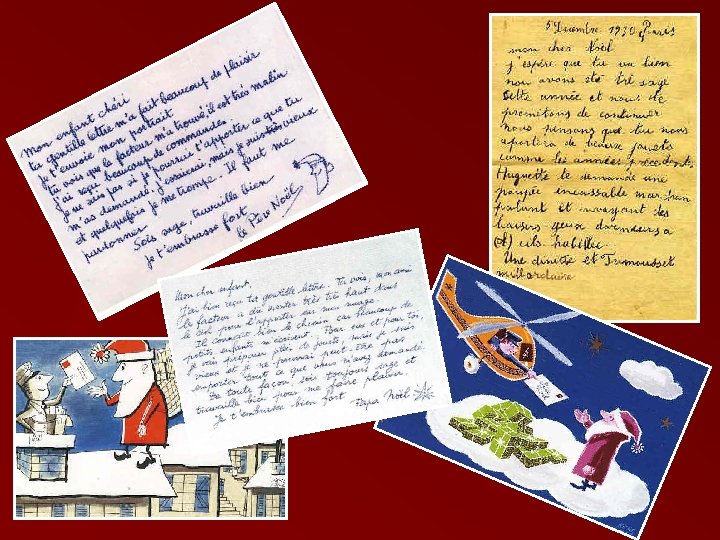 Mon enfant chéri
ta gentille lettre m'a fait beaucoup de plaisir
Je t'envoie mon portrait
tu vois que le facteur m'a trouvé, il est très malin
J'ai reçu beaucoup de commandes.
Je ne sais pas si je pourrai t'apporter ce que tu
m'as demandé. J'essaierai, mais je suis très vieux
et quelquefois je me trompe. Il faut me
pardonner. Sois sage, travaille bien
Je t'embrasse fort
le Père Noël
5 Décembre 1930 Paris
mon cher Noël
j'espère que tu va bien
nou avons été trè sage
cette année et nous te
promettons de continuer
nous pensons que tu nous
aportera de beaux jouets
comme les années précedentes
Huguette te demande une
poupée incassable marchan
parlant et envoyant des
baisers yeux dormeurs a
cils habillée
Une dinette et Trimousset
Mon cher enfant,
J'ai bien reçu ta gentille lettre. Tu vois, mon ami
le facteur a dû monter très très haut dans
le ciel pour l'apporter sur mon nuage.
Il connait bien le chemin car beaucoup de
petits enfants m'écrivent. Pour eux et pour toi,
je vais préparer plein de jouets, mais je suis
vieux et je ne pourrai peut-être pas
emporter tout ce que vous m'avez demandé.
De toute façon, sois toujours sage et
travaille bien pour me faire plaisir.
Je t'embrasse bien fort
Papa Noël